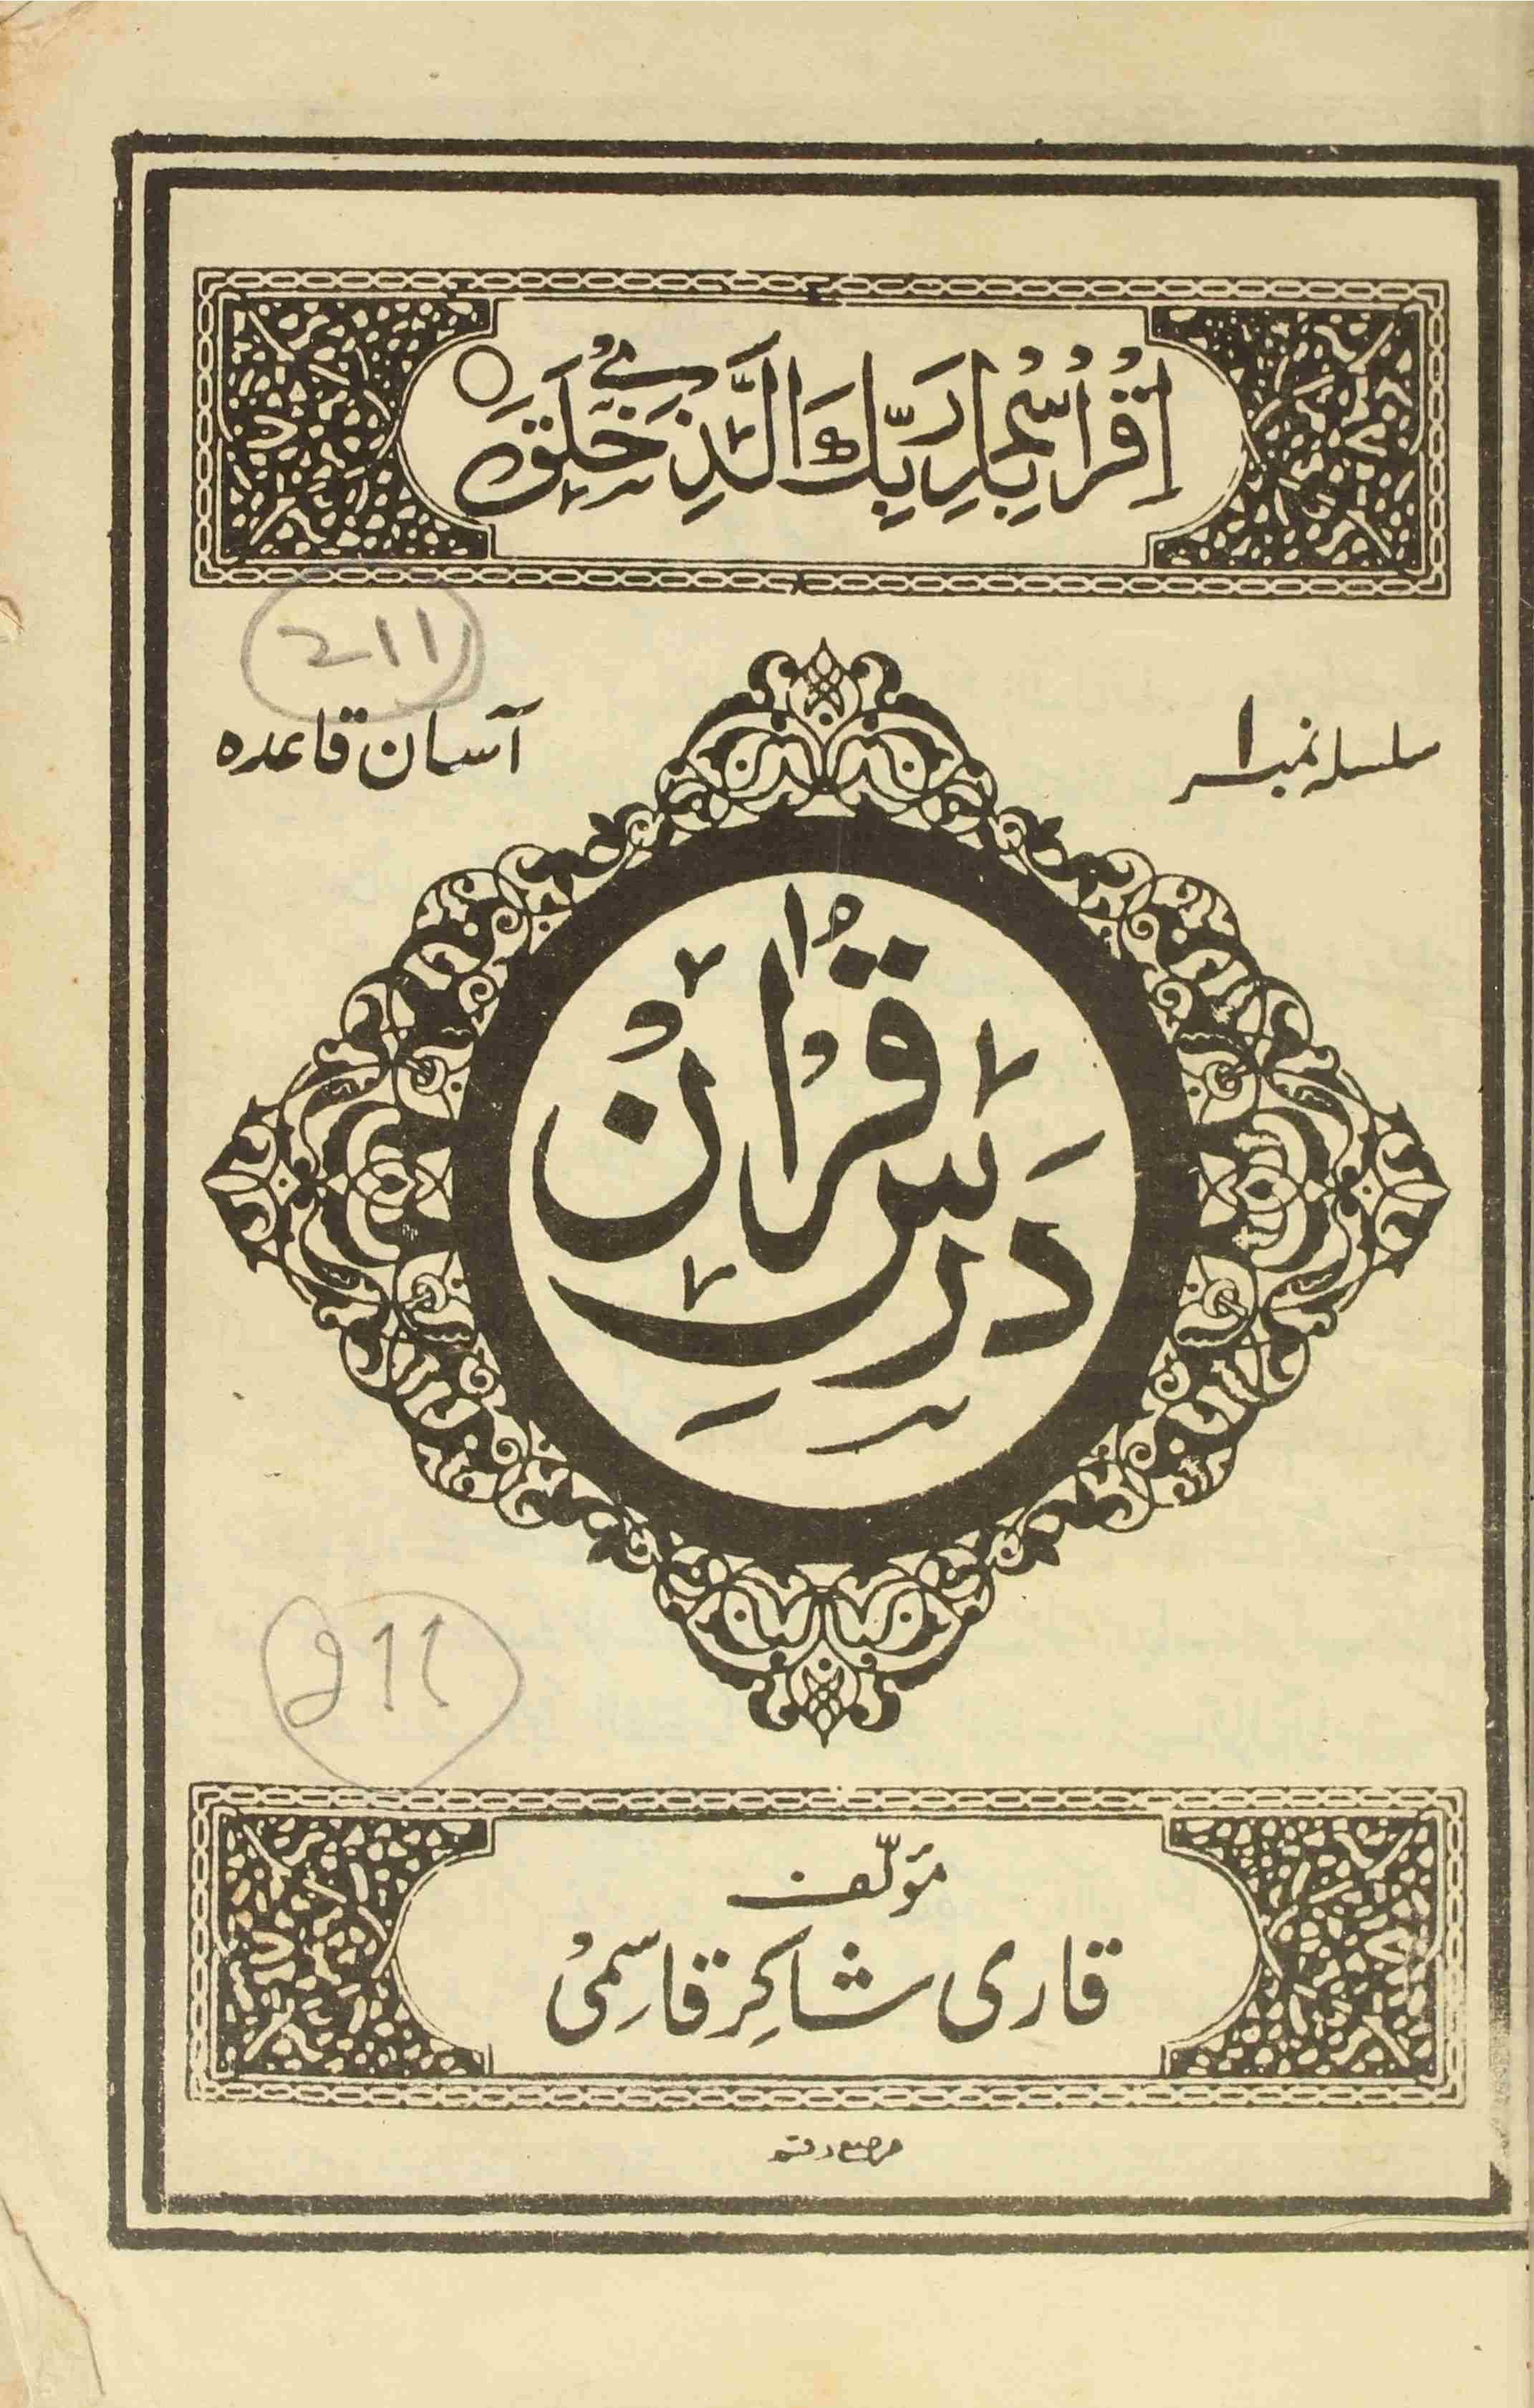 اِقْرَاْ بِاسْمِ رَبِّكَ الَّذِيْ خَلَقَ ۝
211
سلسلہ نمبر ۱
آسان قاعدہ
دَرسِ قُرْاٰنْ
211
مؤلّف
قاری شاکِر قاسِمیْ